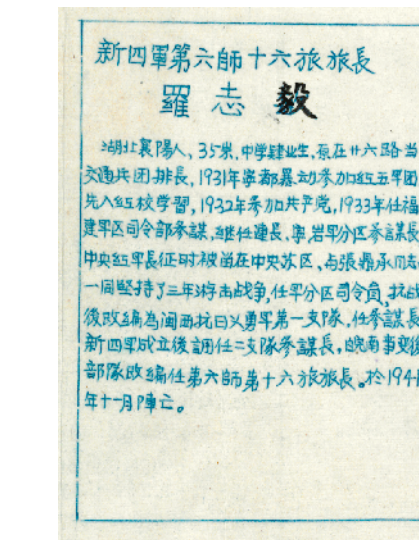 新四軍第六師十六旅旅長
羅志毅
湖北襄陽人,35岁,中学肄业生,原在廿六路当
交通兵团排長,1931年寧都暴动参加红五軍团
先入红校学習,1932年参加共产党,1933年任福
建軍区司令部参謀,継任連長、岩軍分区参謀長
中央红軍長征时被留在中央苏区,与張鼎承
一同堅持了三年游击战争,任軍分区司令員,抗战
後改編為闽西抗日义勇軍第一支隊,任参謀長
新四軍成立後調任二支隊参謀長,皖南事変後
部隊改編任第六師第十六旅旅長。於1941
年十一月阵亡。